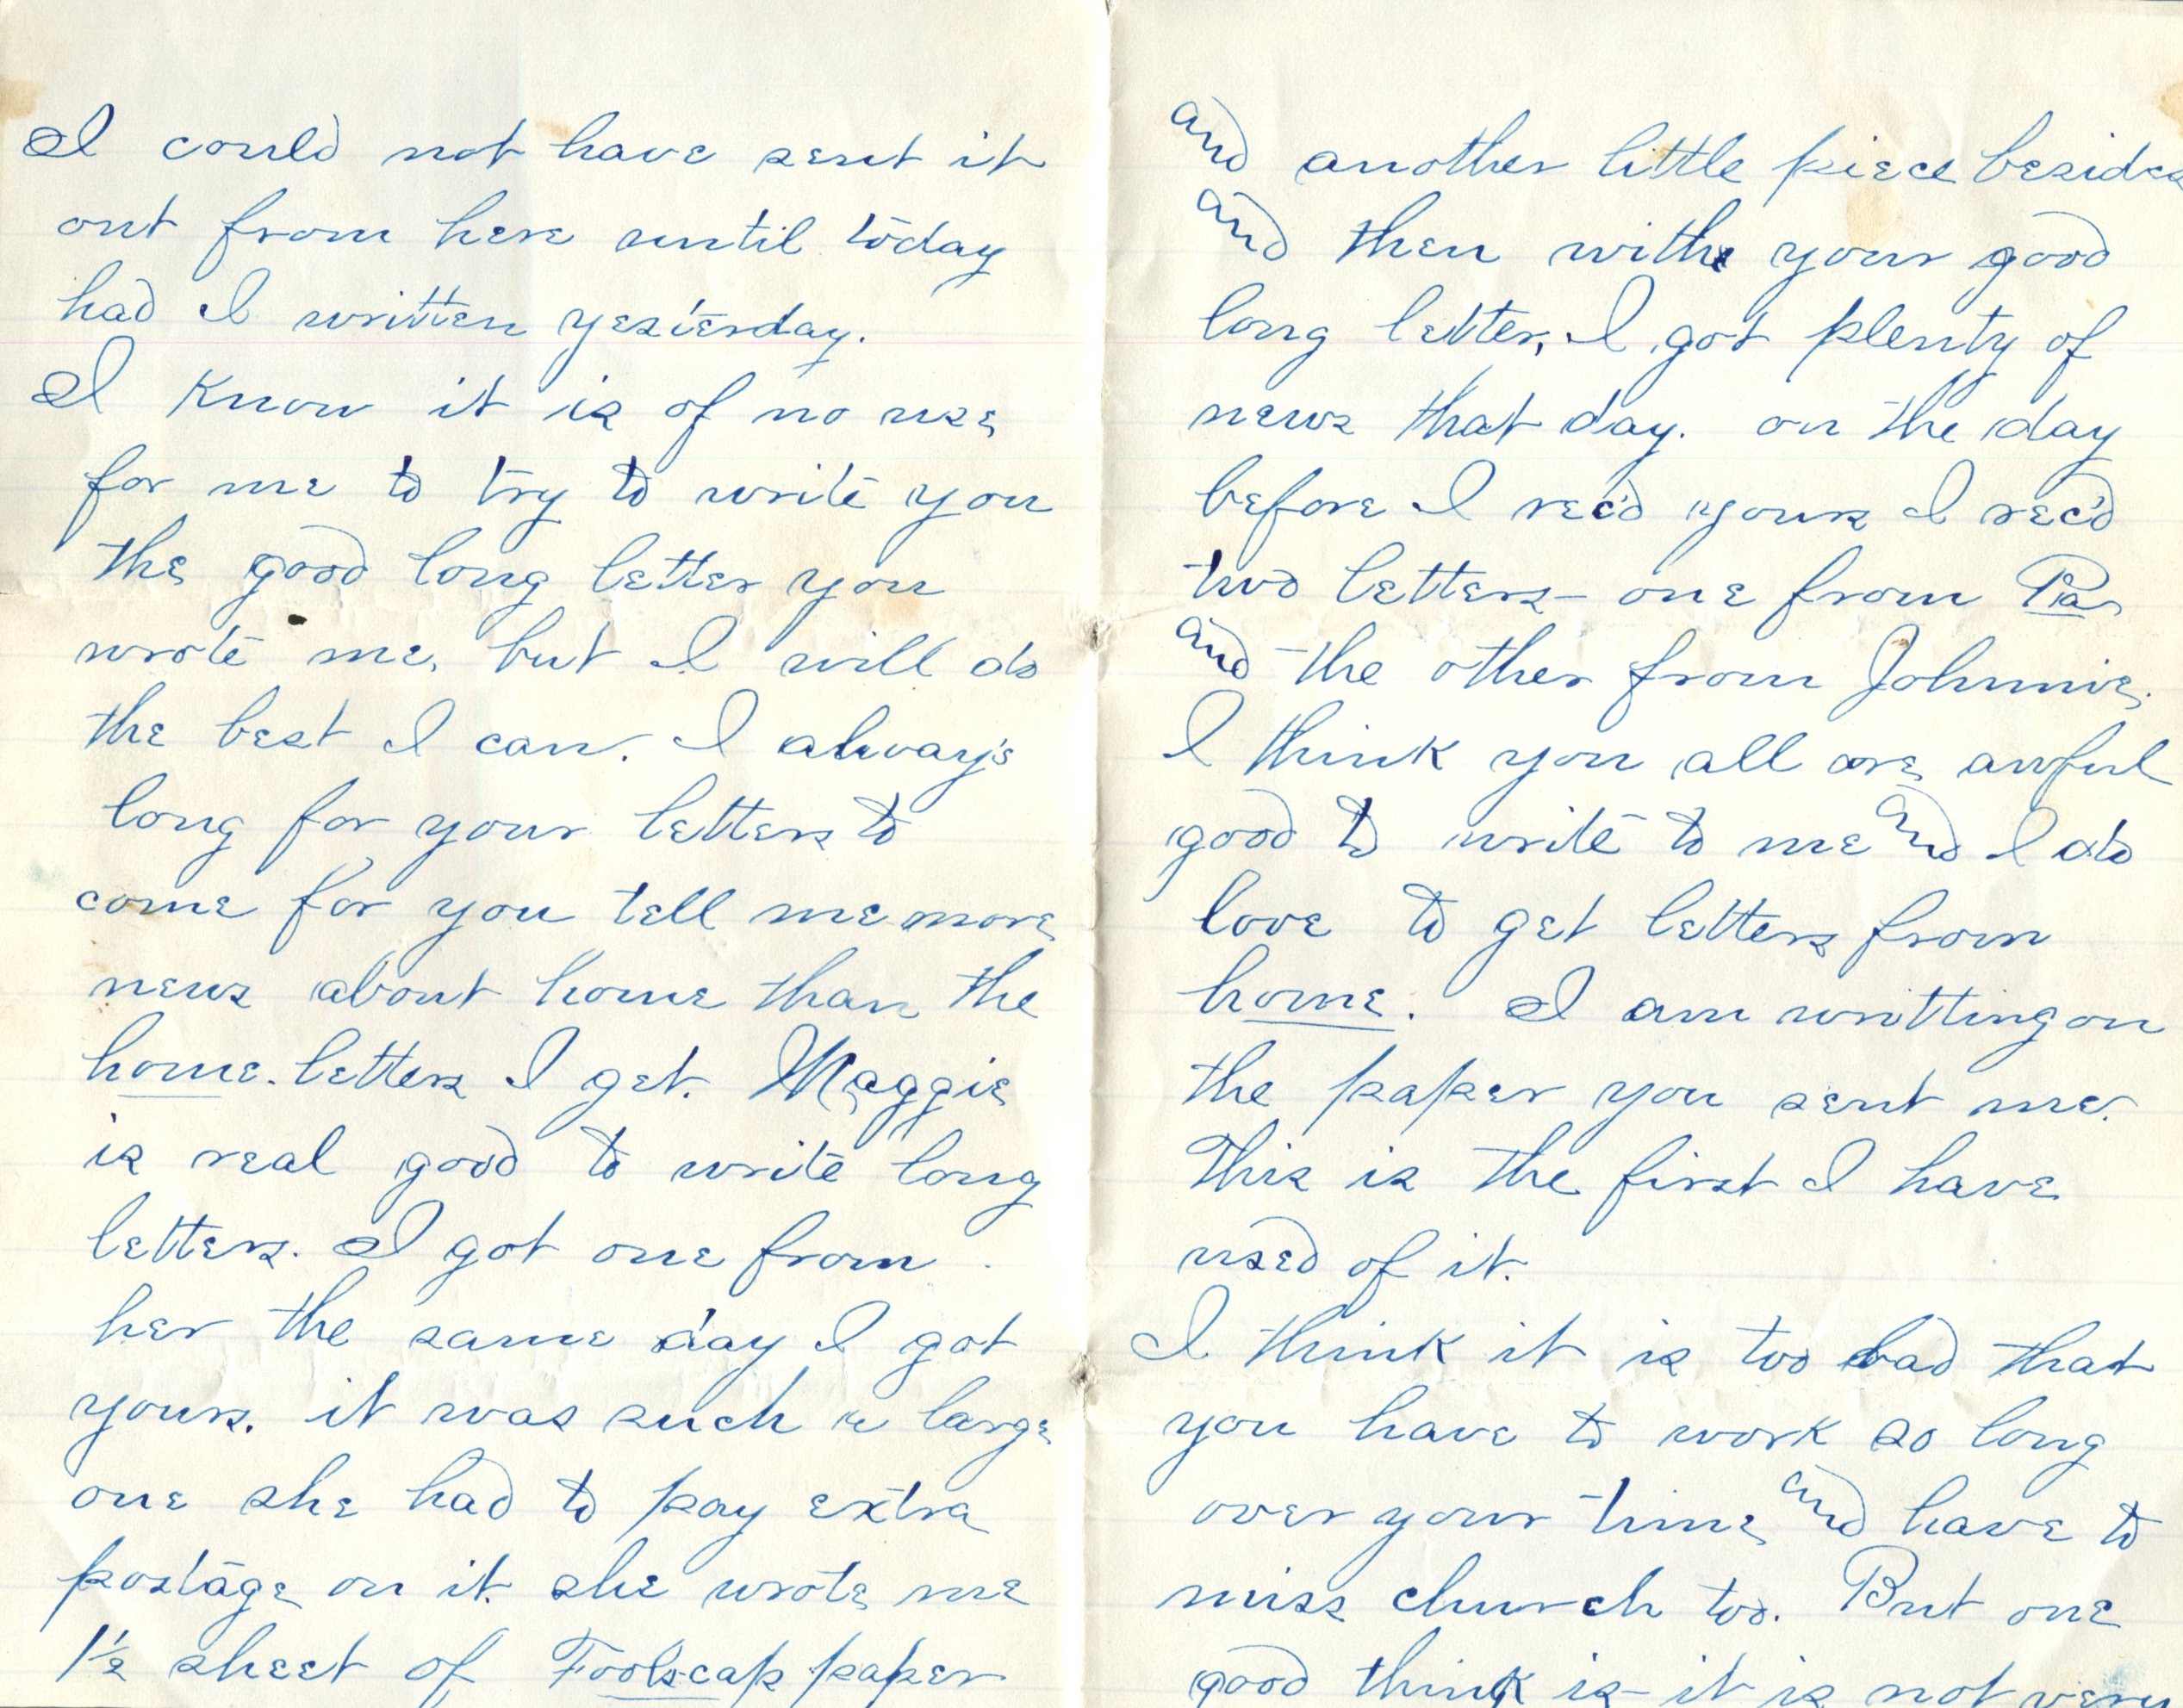 I could not have sent it
out from here until today
had I written yesterday.
I know it is of no use
for me to try to write you
the good long letter you
wrote me, but I will do
the best I can. I always
long for your letters to
come for you tell me more
news about home than the
home letters I get. Maggie
is real good to write long
letters. I got one from
her the same day I got
yours. it was such a large
one she had to pay extra
postage on it. she wrote me
1½ sheet of Foolscap paper
and another little piece besides
and then with your good
long letter, I got plenty of
news that day. on the day
before I rec'd yours I rec'd
two letters - one from Pa
and the other from Johnnie.
I think you all are awful
good to write to me and I do
love to get letters from
home. I am writting on
the paper you sent me.
This is the first I have
used of it.
I think it is too bad that
you have to work so long
over your time, and have to
miss church too. But one
good think is it is not very